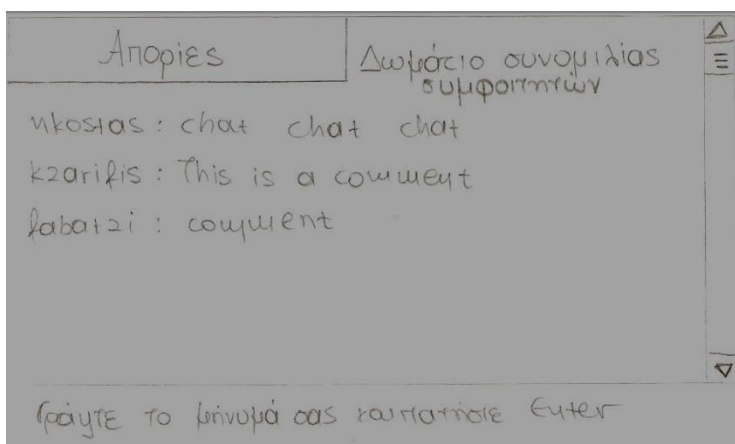 Απορίες
Δωμάτιο συνομιλίας
συμφοιτητών
nkostas : chat chat chat
kzarifis : This is a comment
fabatzi : comment
Γράψτε το μήνυμά σας και πατήστε Enter